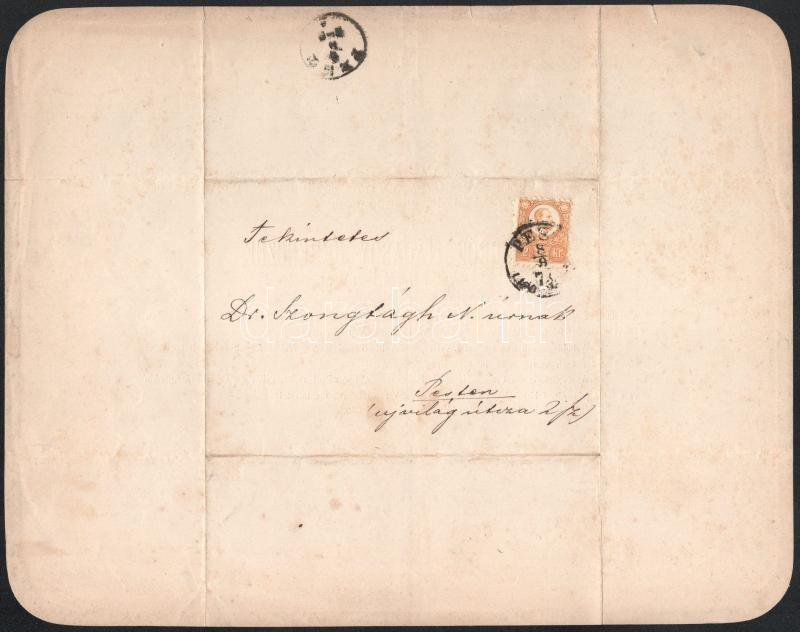 Tekintetes
Dr. Szongtágh N. úrnak
Pesten
(ujvilág útsza 2/sz)
PES
darabanth